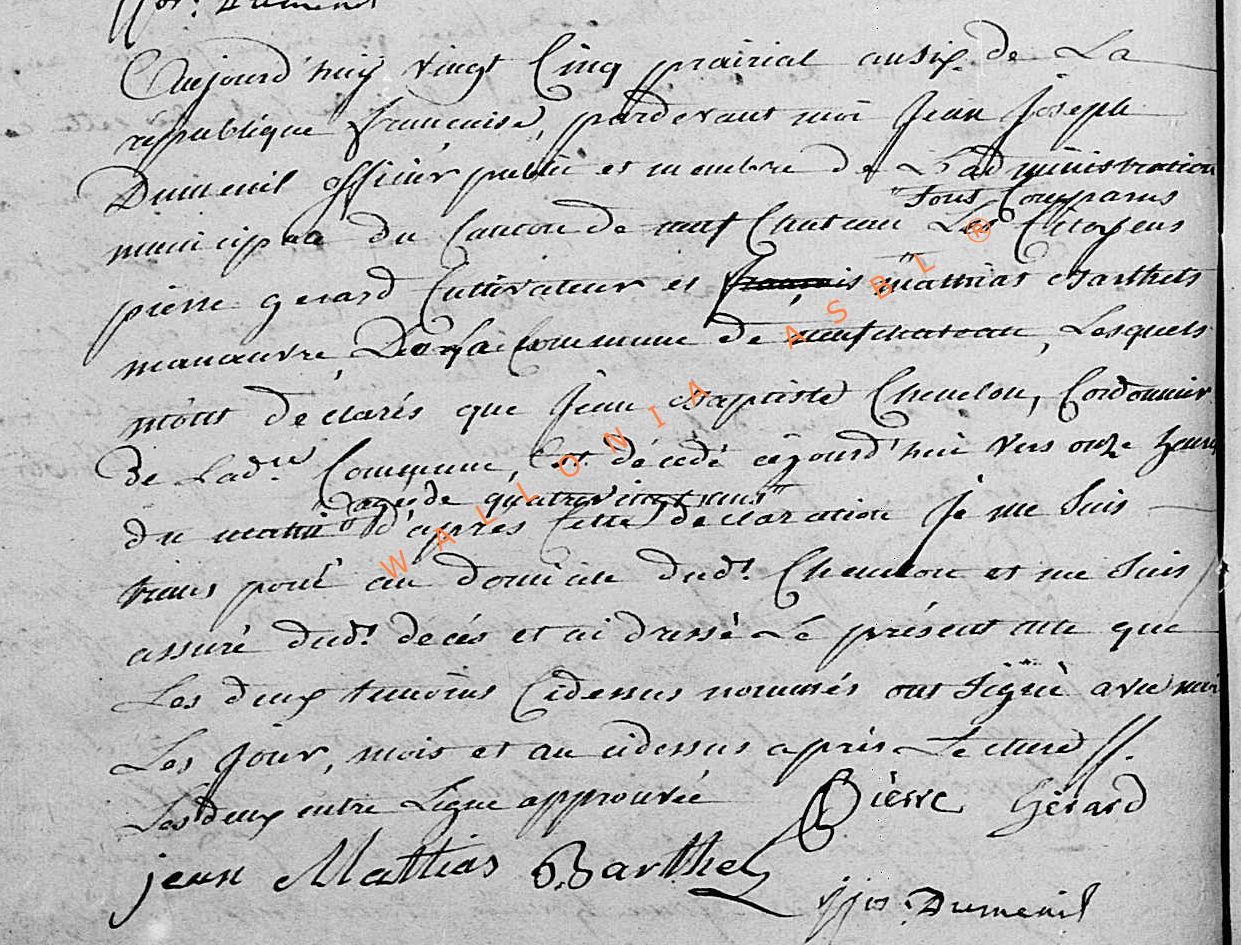 jjos. Dumenil
Aujourd'huy vingt Cinq prairial an six de La
republique francaise, pardevant moi Jean Joseph
Dumenil officier public et membre de L'administration
"sont Comparus
municipale du Canton de neufchateau Les Citoyens
pierre gerard Cultivateur et francois mathias Barthels
manoeuvre, De La Commune de neufchateau, Lesquels
m'ont declarés que Jean Baptiste Chenelon, Cordonnier
de Ladte Commune, Est décédé cejourd'hui vers onze heures
"agé de quatrevingt ans"
du matin d'apres Cette declaration Je me suis
transporté au domicile dudt Chenelon et me suis
assuré dudt decés et ai dressé Le présent acte que
Les deux temoins Cidessus nommés ont signé avec moi
Les Jour, mois et an cidessus après Lecture
Les deux entre Ligne approuvée
Pierre Gérard
jean Mathias Barthel
jjos. Dumenil
WALLONIA ASBL ®